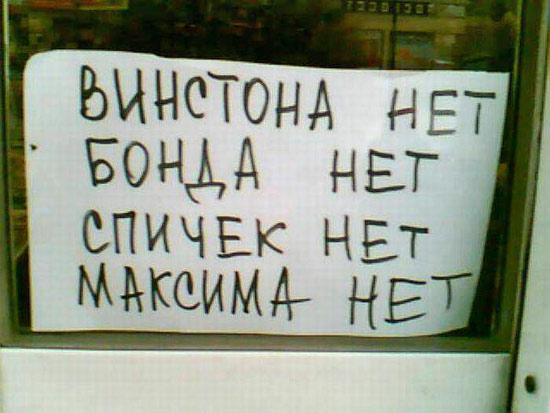 ВИНСТОНА НЕТ
БОНДА НЕТ
СПИЧЕК НЕТ
МАКСИМА НЕТ